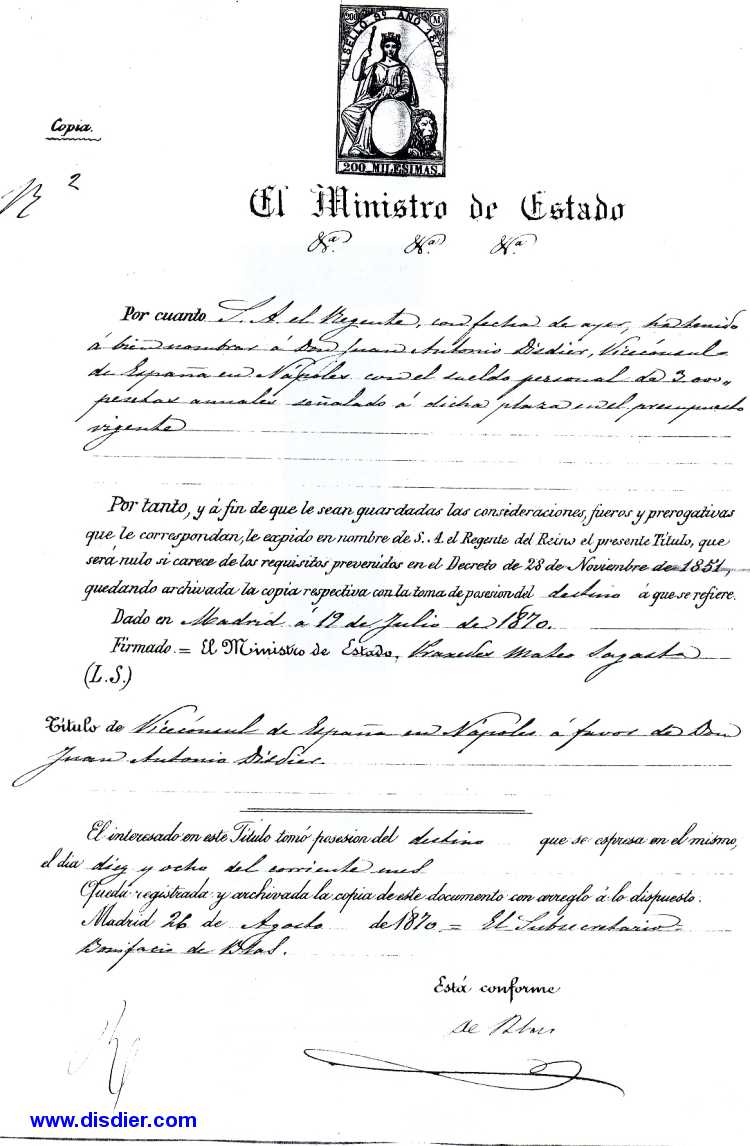 200 M
SELLO 9º AÑO 1870
200 MILESIMAS
Copia.
2
El Ministro de Estado
&ª. &ª. &ª.
Por cuanto S. A. el Regente, con fecha de ayer, ha tenido
á bien nombrar á Don Juan Antonio Disdier, Vicecónsul
de España en Nápoles con el sueldo personal de 3.000,,
pesetas anuales señalado á dicha plaza en el presupuesto
vigente
Por tanto, y á fin de que le sean guardadas las consideraciones, fueros y prerogativas
que le correspondan, le expido en nombre de S. A. el Regente del Reino el presente Título, que
será nulo si carece de los requisitos prevenidos en el Decreto de 28 de Noviembre de 1851,
quedando archivada la copia respectiva con la toma de posesion del destino á que se refiere.
Dado en Madrid á 19 de Julio de 1870.
Firmado. = El Ministro de Estado, Praxedes Mateo Sagasta
(L.S.)
Título de Vicecónsul de España en Nápoles á favor de Don
Juan Antonio Disdier.
El interesado en este Título tomó posesion del destino que se espresa en el mismo,
el dia diez y ocho del corriente mes.
Queda registrada y archivada la copia de este documento con arreglo á lo dispuesto.
Madrid 26 de Agosto de 1870 = El Subsecretario =
Bonifacio de Blas.
Está conforme
de Blas
www.disdier.com